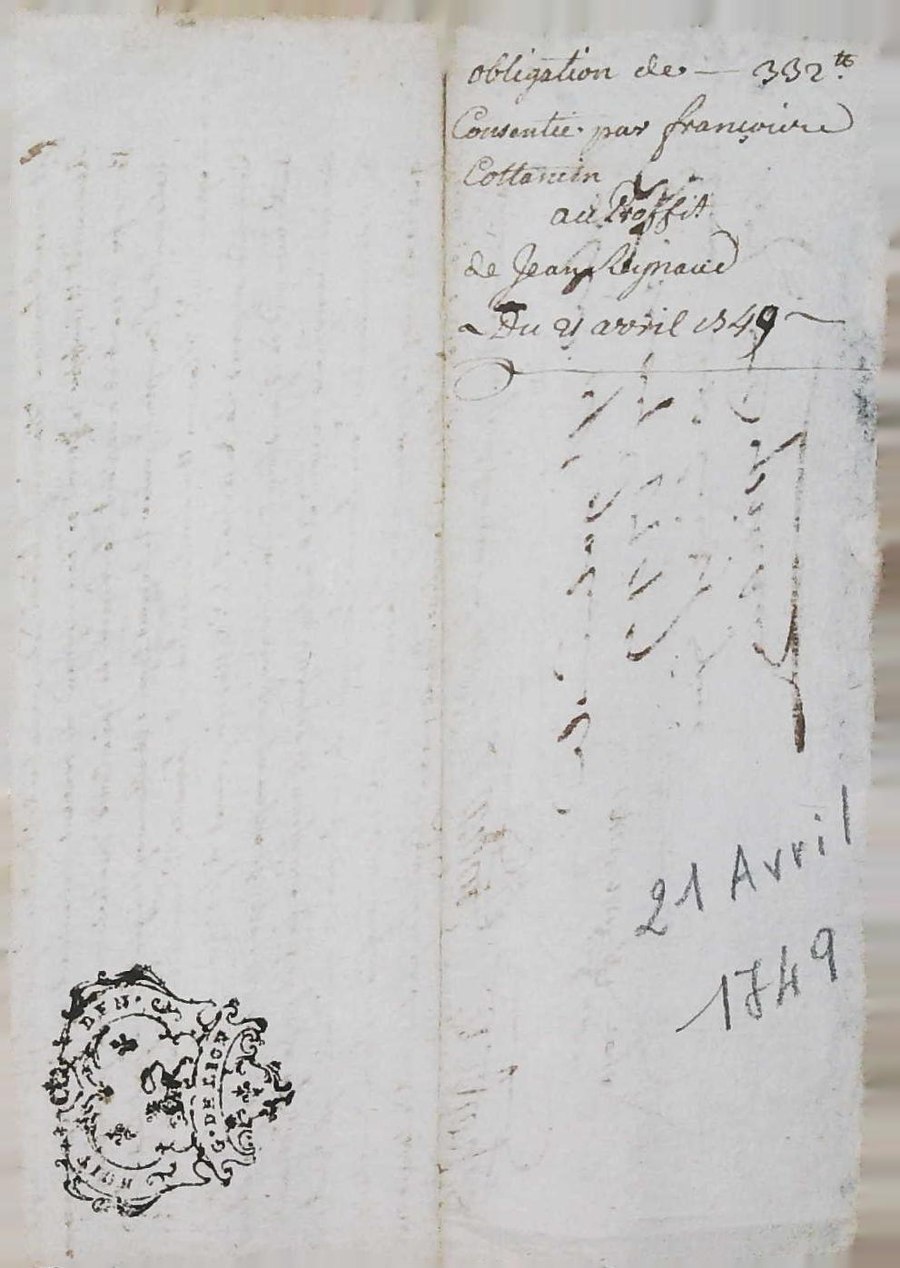 obligation de 332tt
Consentie par françoise
Cottancin
au Proffit
de Jean Reynaud
Du 21 avril 1749
21 Avril
1749
G. DE LION